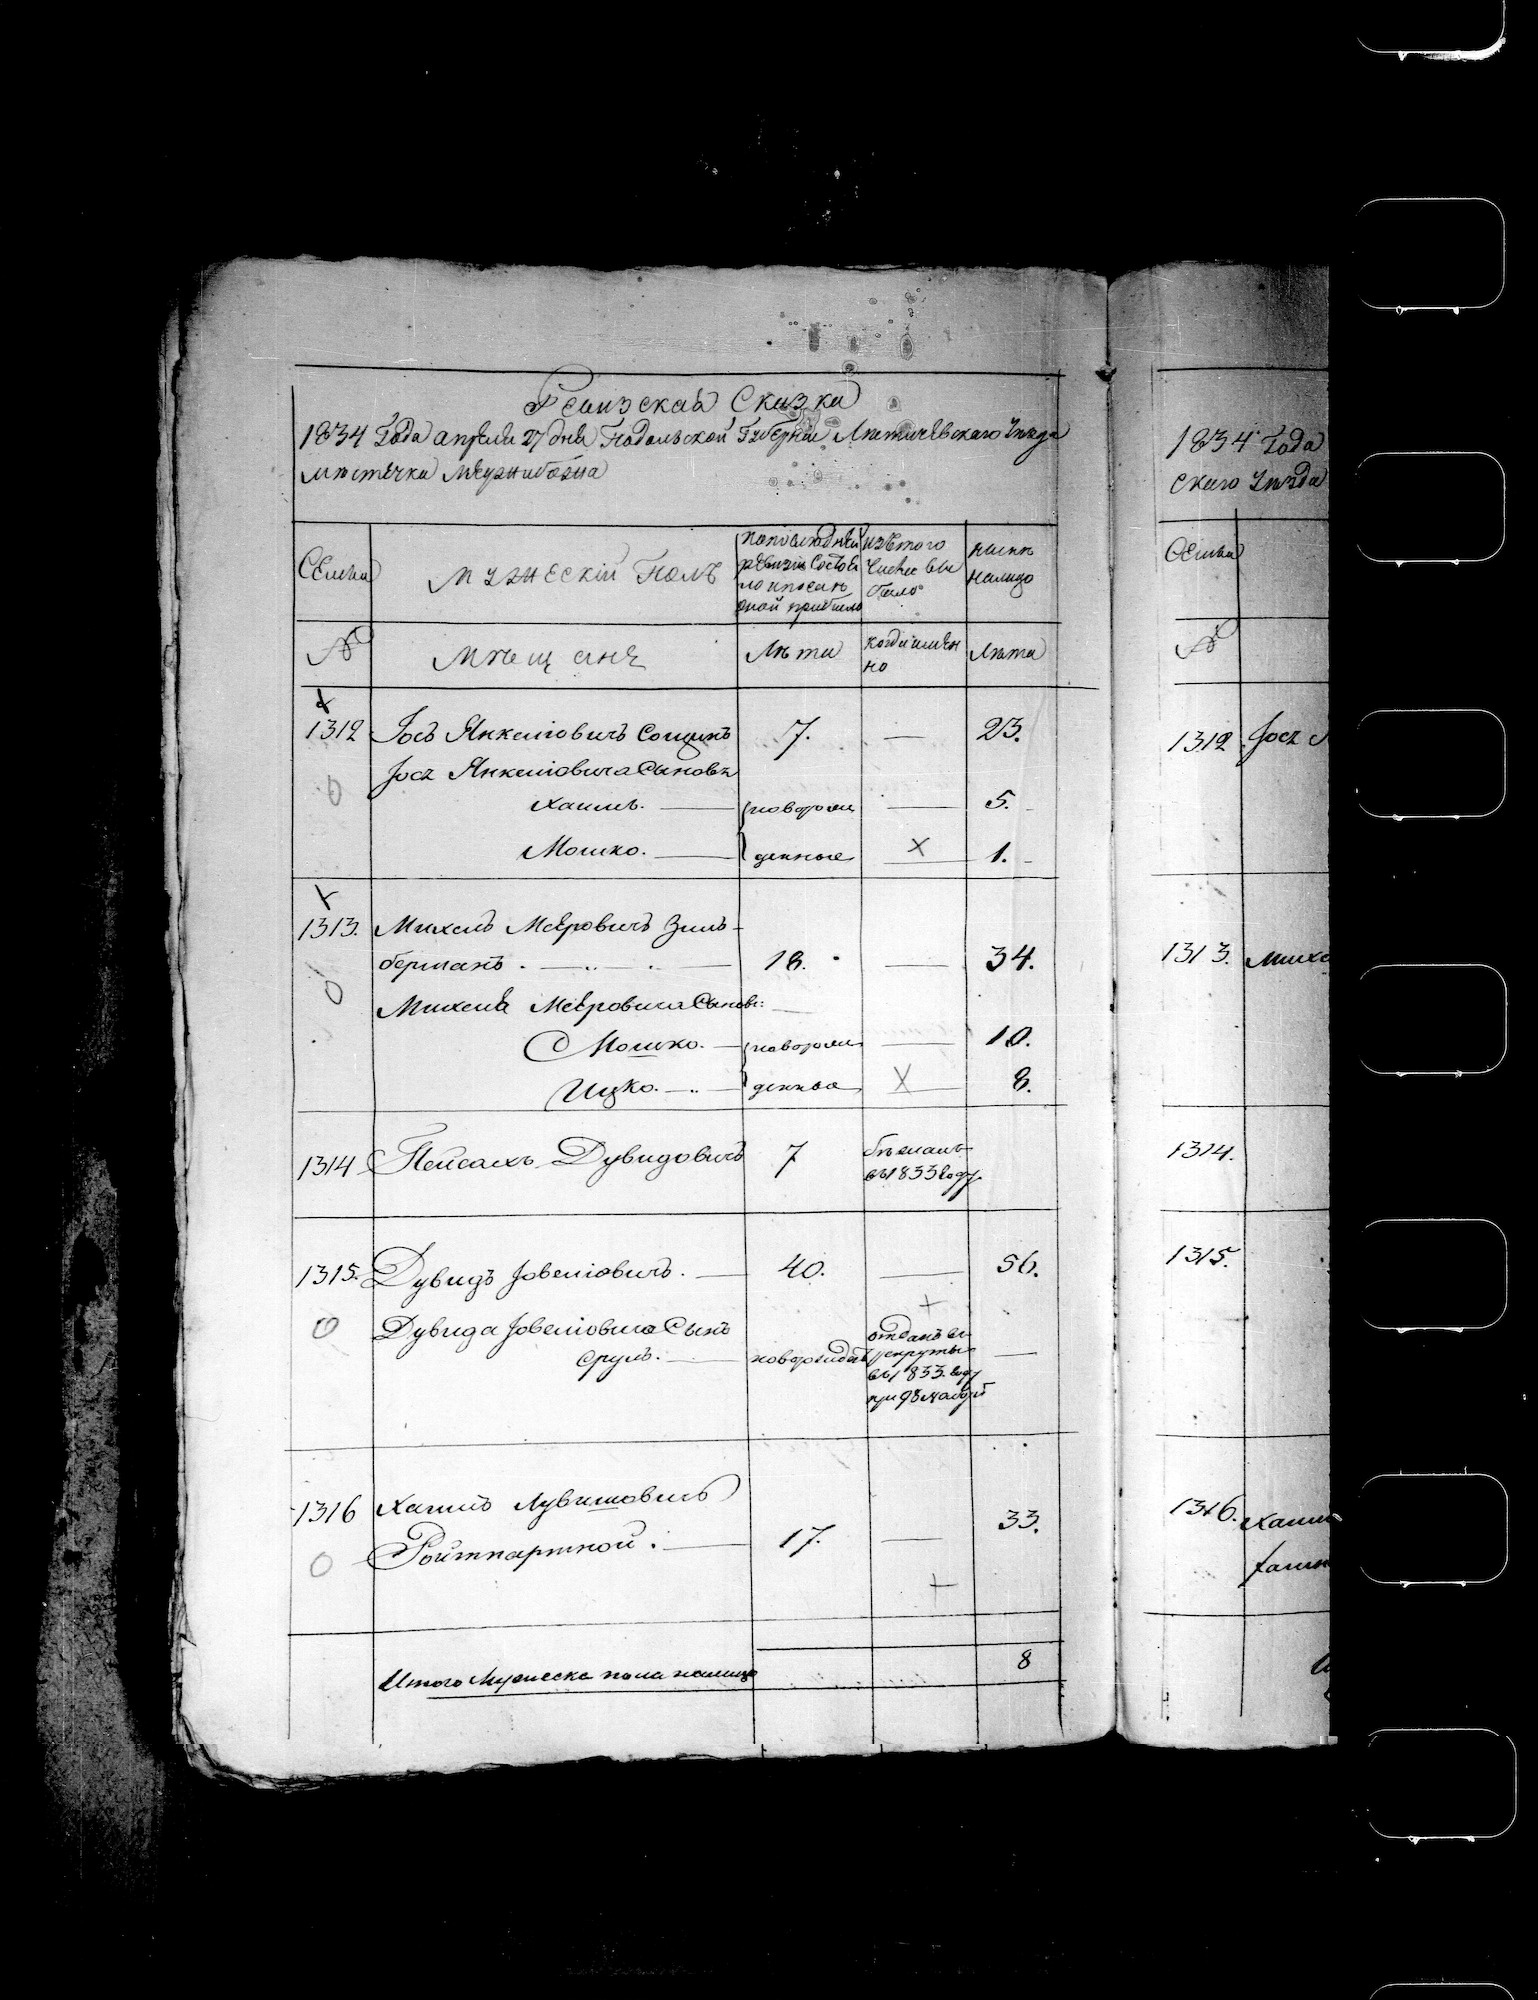 Ревизская Сказка
1834 Года апреля 27 дня Подольской Губернии Летичевскаго Уезда
местечка Меджибожа
Семьи
Мужескій Полъ
по последней ревизіи состояло и после оной прибыло
изъ того числа выбыло
ныне на лицо
№
Мещане
Лета
когда именно
Лета
1312 Іось Янкеліовичъ 7. — 23.
Іося Янкеліовича Сыновья
Хаимъ. — новорож — 5.
Мошко. — денные — 1.
1313. Михель Меёровичъ Зиль-
берманъ. — 18. — 34.
Михеля Меёровича Сыновь:
Мошко. — новорож — 10.
Ицко. — денные — 8.
1314 Пейсахъ Дувидовичъ 7 бежалъ
въ 1833 году
1315. Дувидъ Іовеліовичъ. — 40. — 56.
Дувида Іовеліовича Сынъ
Срулъ. — новорожденъ отданъ въ —
рекруты
въ 1833. году
при 98 наборе
1316 Хаимъ
Ройтпартной. — 17. — 33.
Итого Мужеска пола налицо 8
1834 Года
скаго Уезда
Семьи
№
1312 Іося
1313. Михе
1314.
1315.
1316. Хаим